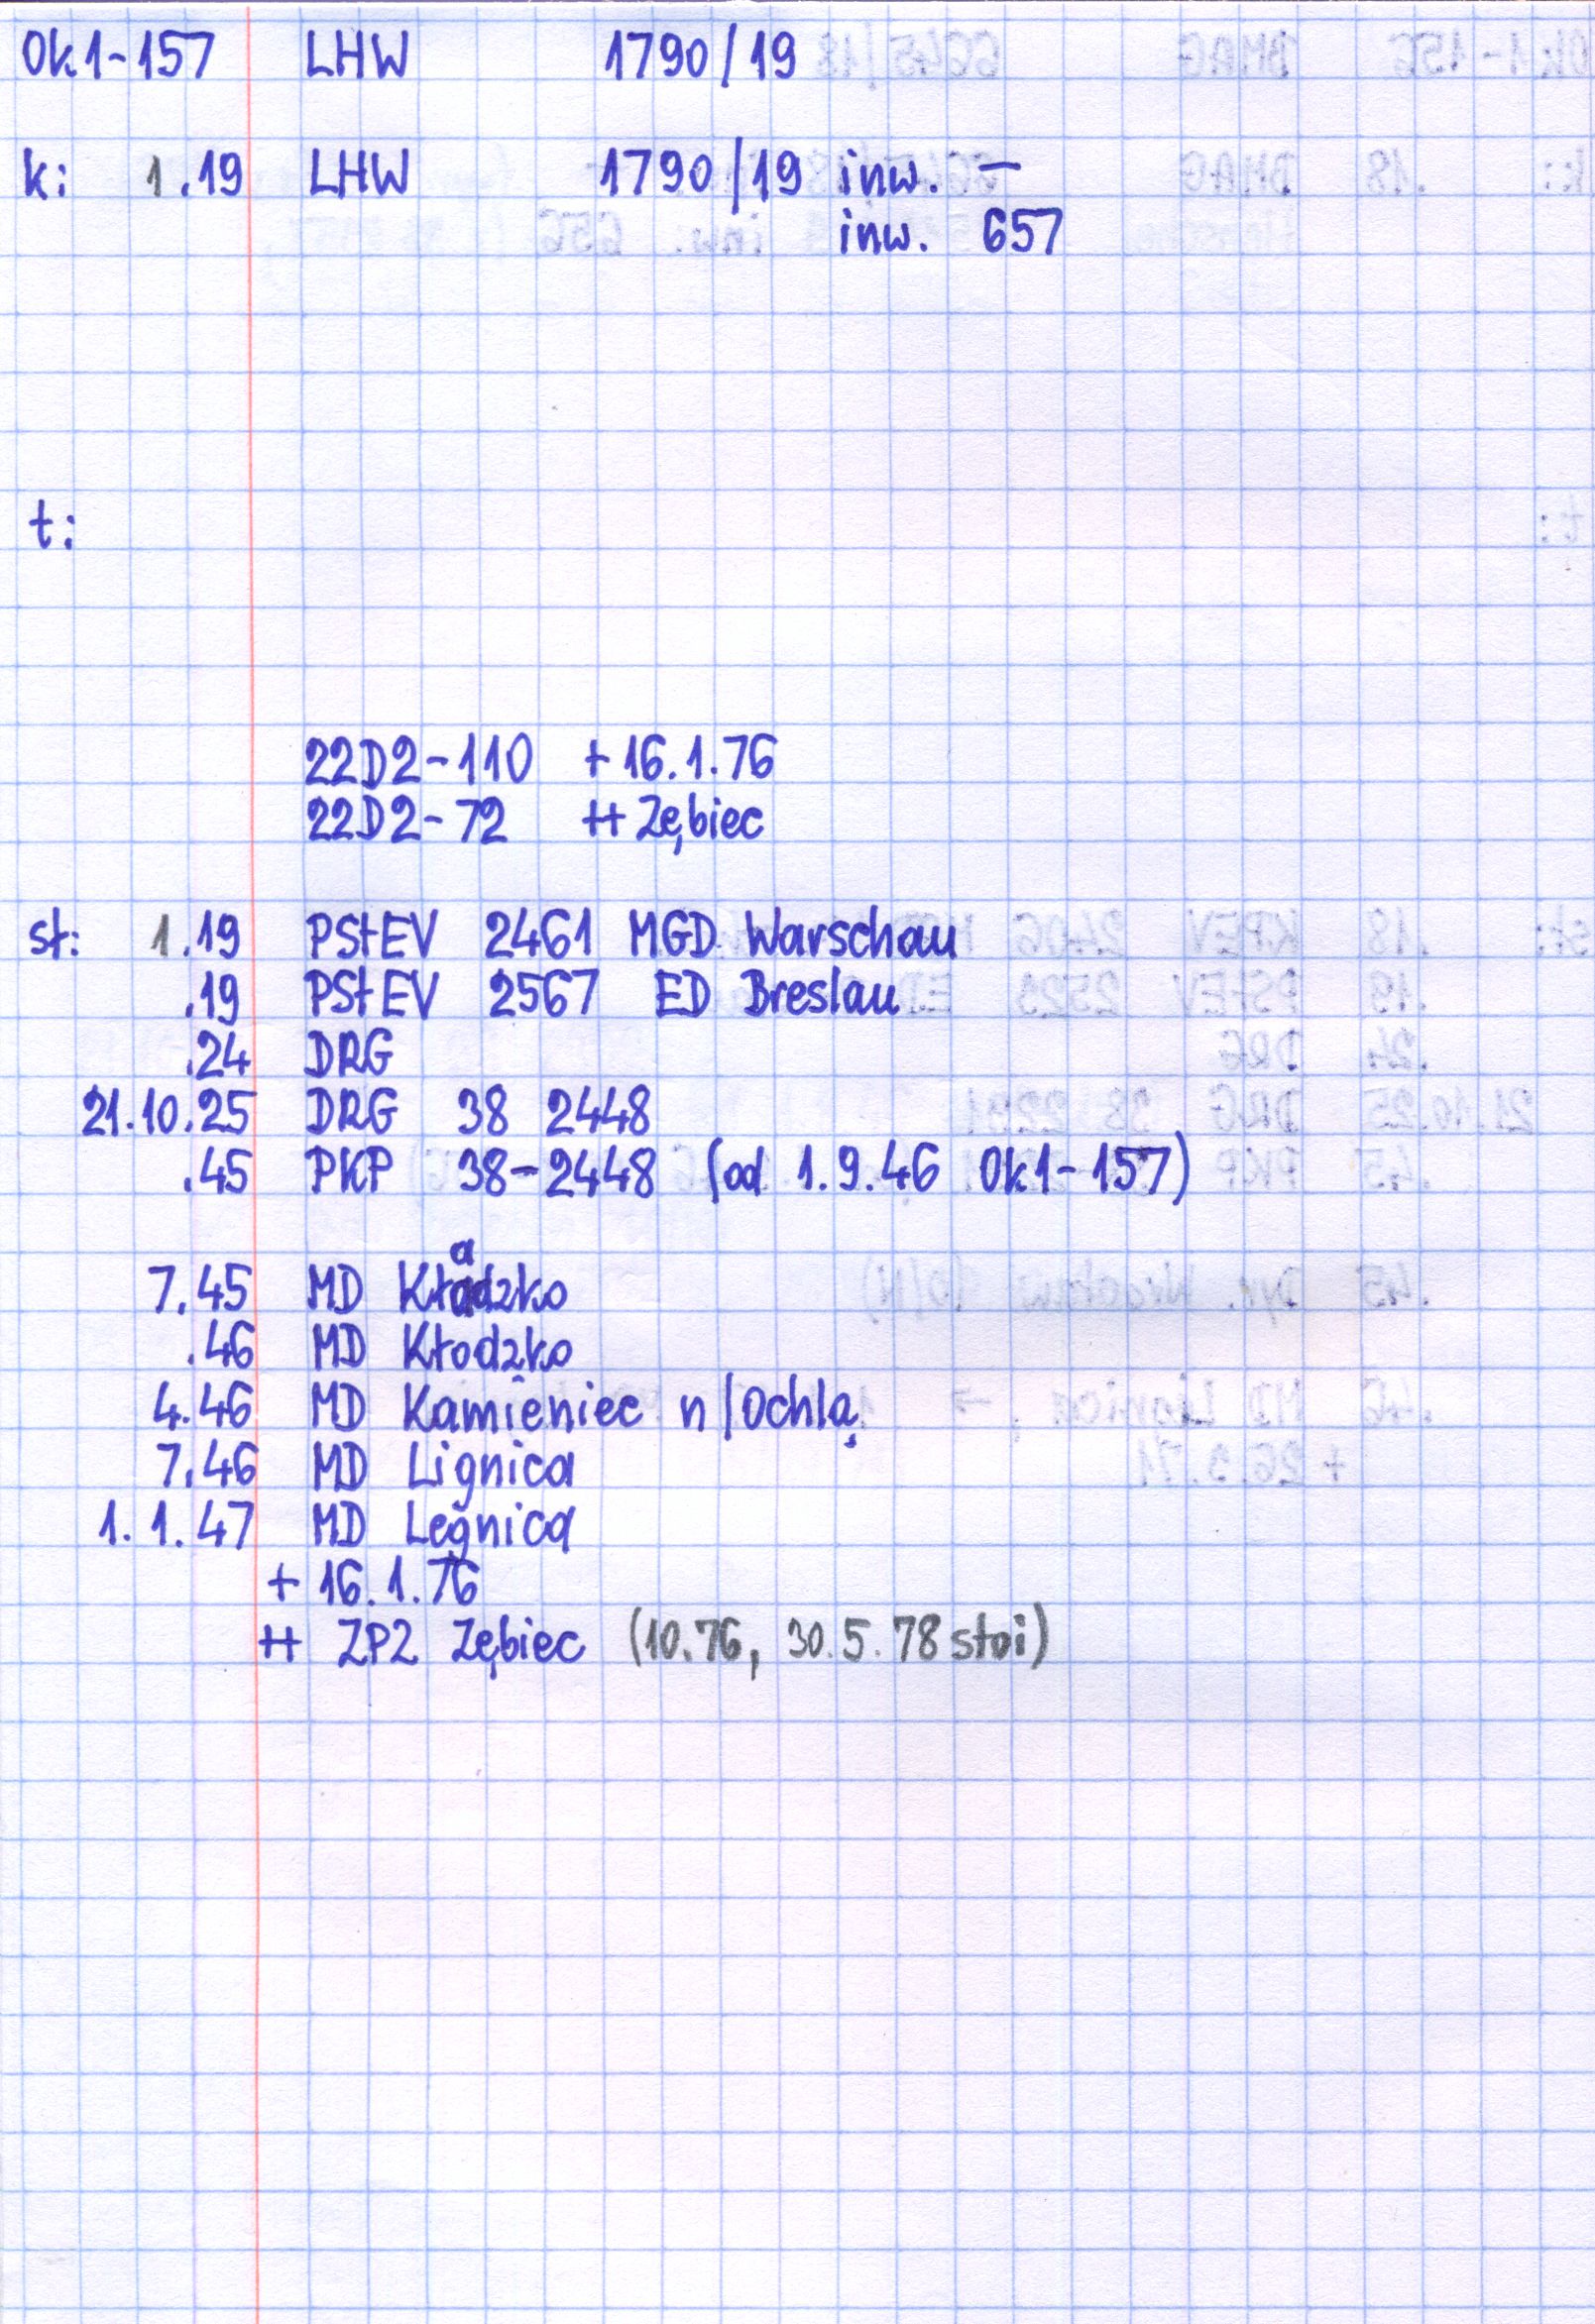 Ok1-157 LHW 1790/19
k: 1.19 LHW 1790/19 inw. —
inw. 657
t:
22D2-110 + 16.1.76
22D2-72 ++ Zębiec
st: 1.19 PStEV 2461 MGD Warschau
.19 PStEV 2567 ED Breslau
.24 DRG
21.10.25 DRG 38 2448
.45 PKP 38-2448 (od 1.9.46 Ok1-157)
7.45 MD Kładzko
.46 MD Kłodzko
4.46 MD Kamieniec n/Ochlą
7.46 MD Lignica
1.1.47 MD Legnica
+ 16.1.76
++ ZPZ Zębiec (10.76, 30.5.78 stoi)